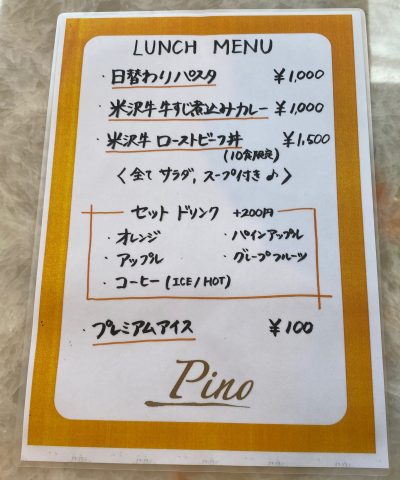 LUNCH MENU
・日替わりパスタ ¥1,000
・米沢牛牛すじ煮込みカレー ¥1,000
・米沢牛 ローストビーフ丼 ¥1,500
(10食限定)
〈全て サラダ,スープ付き♪〉
セット ドリンク +200円
・オレンジ ・パインアップル
・アップル ・グレープフルーツ
・コーヒー (ICE/HOT)
・プレミアムアイス ¥100
Pino